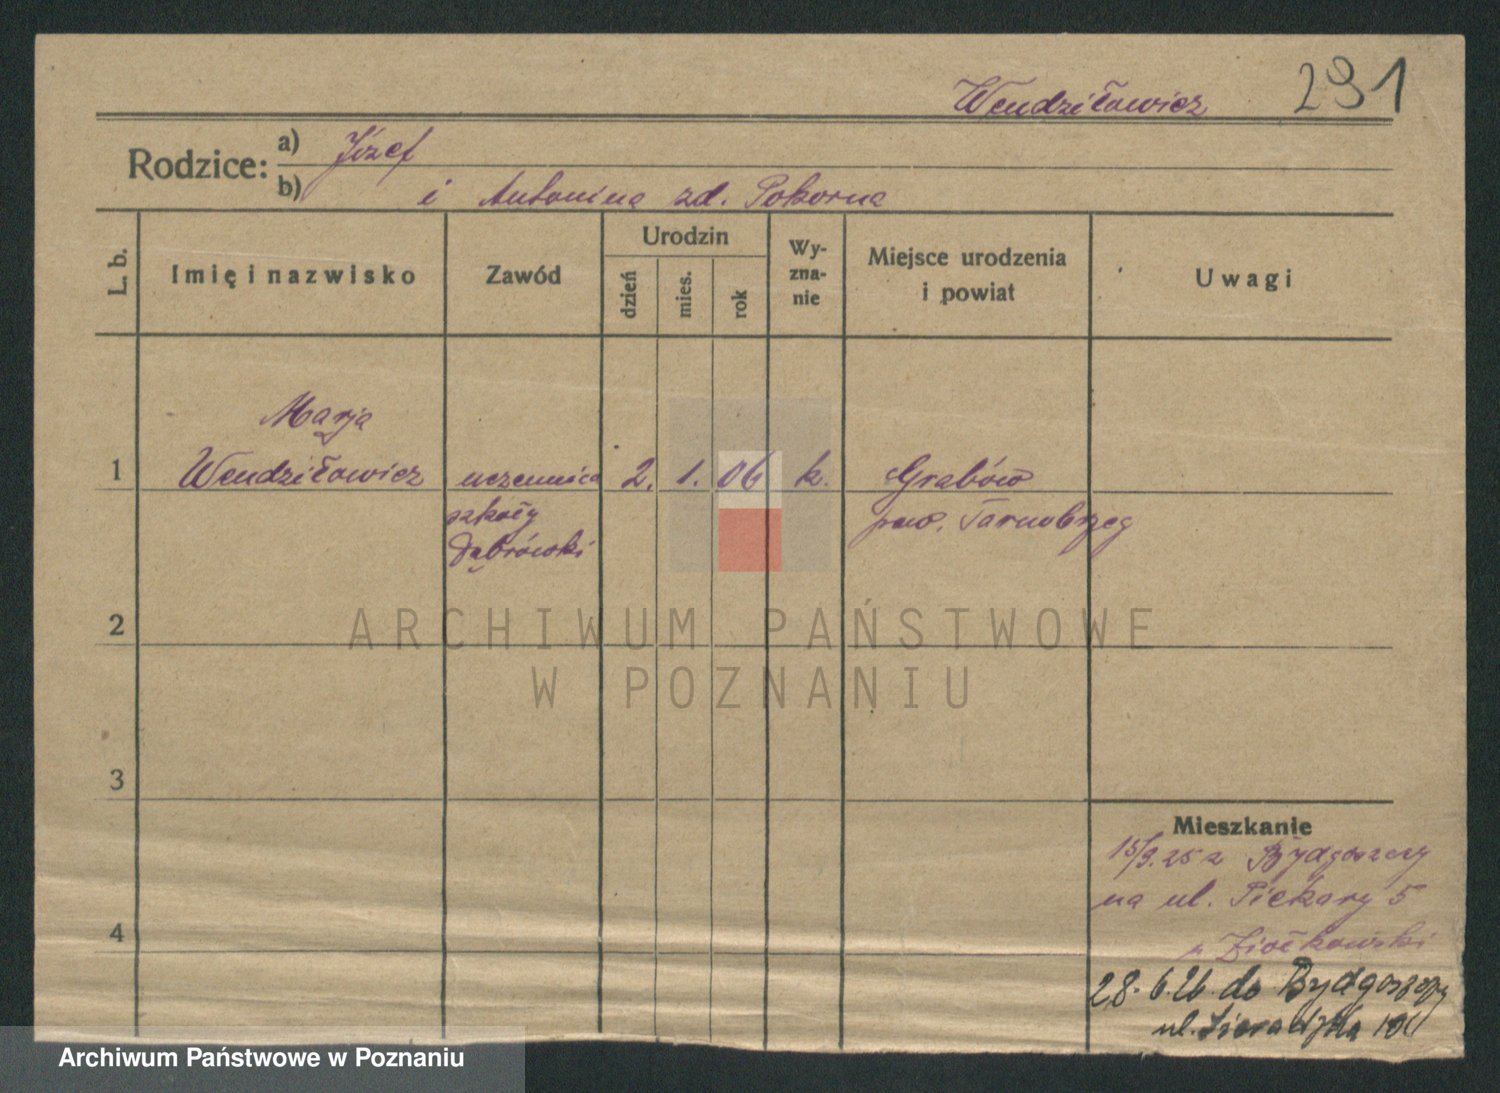 Wendziłowicz 291
Rodzice: a) Józef
b) i Antonina zd. Pokorna
L. b.
Imię i nazwisko
Zawód
Urodzin
dzień
mies.
rok
Wy-
zna-
nie
Miejsce urodzenia
i powiat
Uwagi
Marja
1 Wendziłowicz uczennica 2. 1. 06 k. Grabów
szkoły pow. Tarnobrzeg
Dąbrówki
2
ARCHIWUM PAŃSTWOWE
W POZNANIU
3
Mieszkanie
15/9.25 z Bydgoszczy
na ul. Piekary 5
4
p. Ziołkowski
28. 6. 26. do Bydgoszczy
ul.
Archiwum Państwowe w Poznaniu